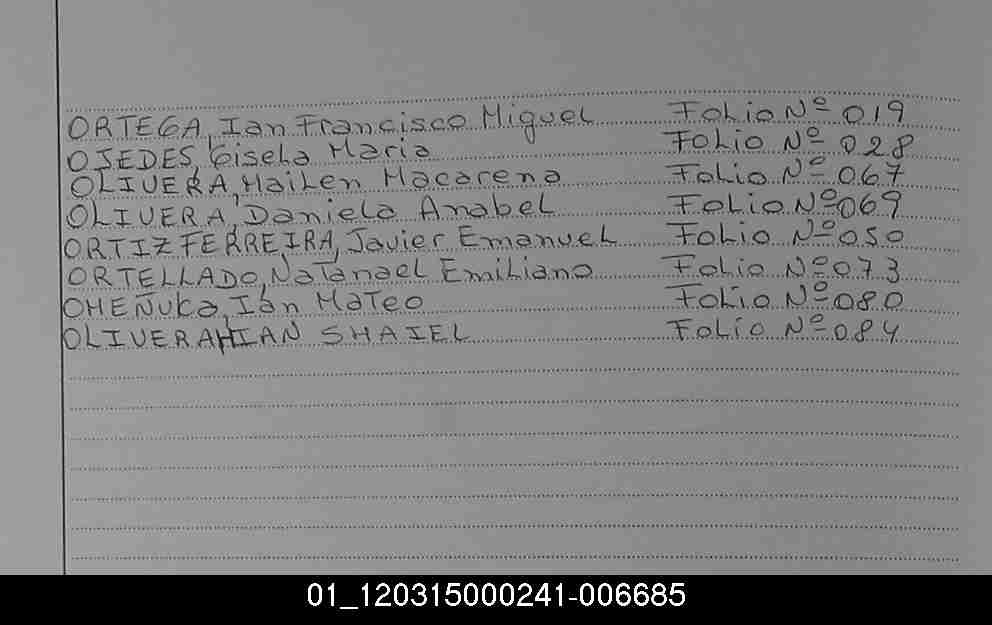 ORTEGA, Ian Francisco Miguel Folio Nº 019
OJEDES, Gisela Maria Folio Nº 028
OLIVERA, Mailen Macarena Folio Nº 067
OLIVERA, Daniela Anabel Folio Nº 069
ORTIZ FERREIRA, Javier Emanuel Folio Nº 050
ORTELLADO, Natanael Emiliano Folio Nº 073
OHEÑUKA, Ian Mateo Folio Nº 080
OLIVERA HIAN SHAIEL Folio Nº 084
01_120315000241-006685